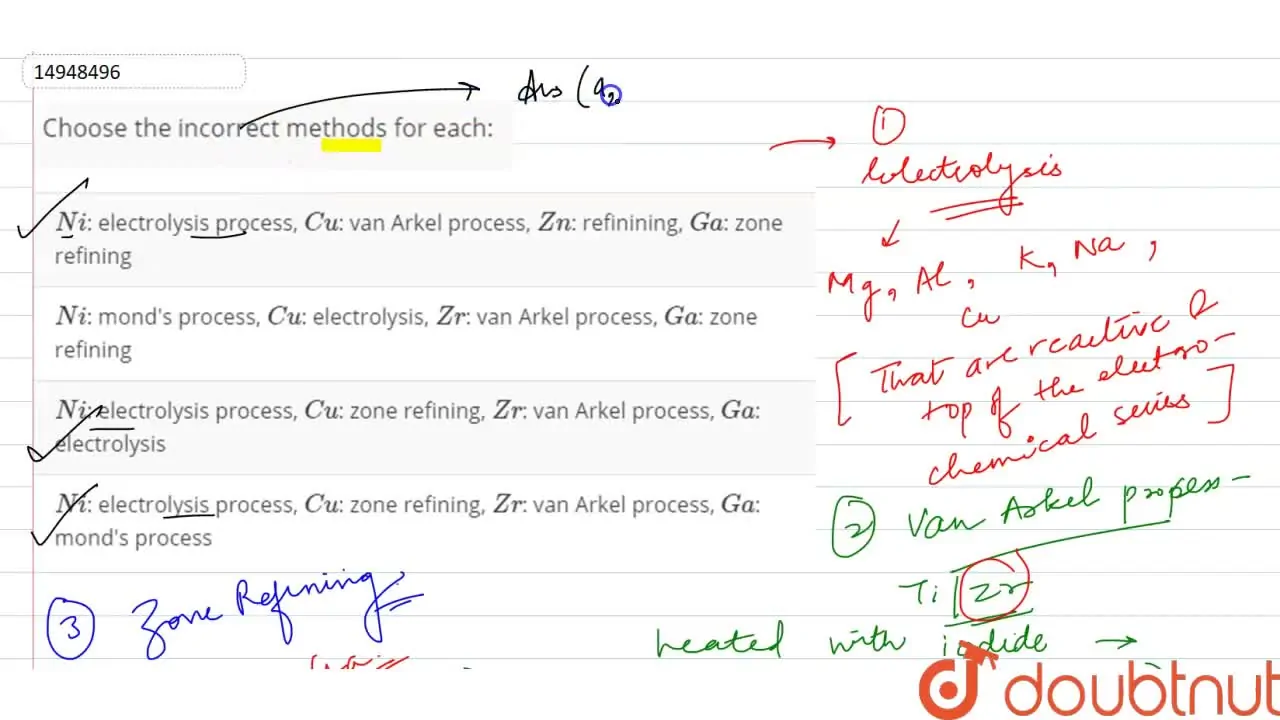 14948496
Ans (a,
Choose the incorrect methods for each:
Ni: electrolysis process, Cu: van Arkel process, Zn: refinining, Ga: zone
refining
Ni: mond's process, Cu: electrolysis, Zr: van Arkel process, Ga: zone
refining
Ni: electrolysis process, Cu: zone refining, Zr: van Arkel process, Ga:
electrolysis
Ni: electrolysis process, Cu: zone refining, Zr: van Arkel process, Ga:
mond's process
3 Zone Refining
1
Electrolysis
Mg, Al, K, Na,
Cu
[ That are reactive &
top of the electro-
chemical series ]
2 Van Arkel process-
Ti Zr
heated with iodide →
doubtnut